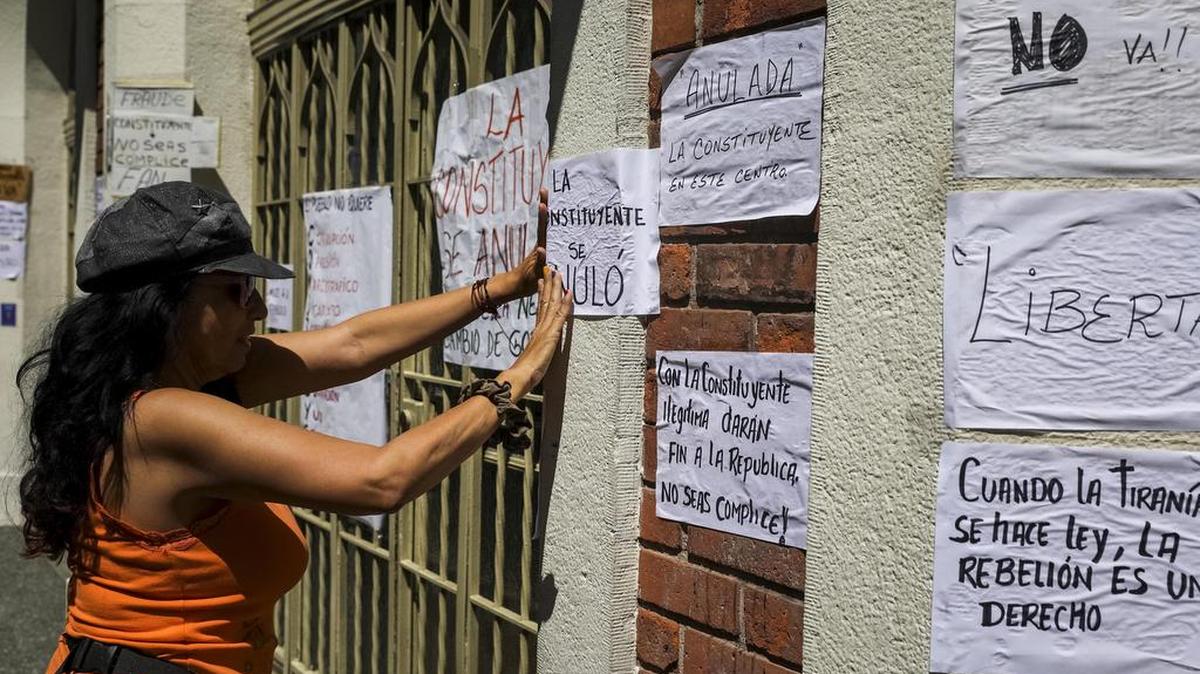 FRAUDE
CONSTITUYENTE
NO SEAS
COMPLICE
FAN
NO QUIERE
Y
LA
CONSTITUY
SE ANUL
CAMBIO DE
LA
NSTITUYENTE
SE
NULÓ
"ANULADA
LA CONSTITUYENTE
EN ESTE CENTRO.
CON LA CONSTITUYENTE
ILEGÍTIMA DARÁN
FIN A LA REPUBLICA.
NO SEAS COMPLICE!
NO VA!!
"LIBERTA
CUANDO LA TIRANÍA
SE HACE LEY, LA
REBELIÓN ES UN
DERECHO